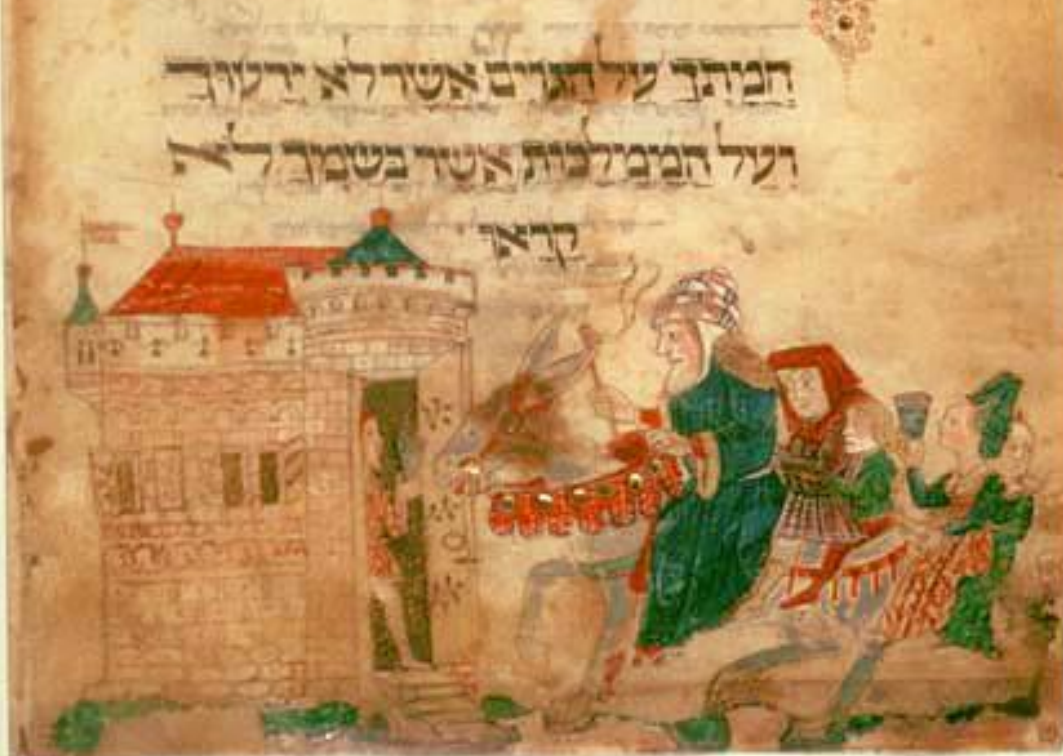 חֲמָתְךָ עַל הַגּוֹיִם אֲשֶׁר לֹא יְדָעוּךָ
וְעַל הַמַּמְלָכוֹת אֲשֶׁר בְּשִׁמְךָ לֹא
קָרָאוּ